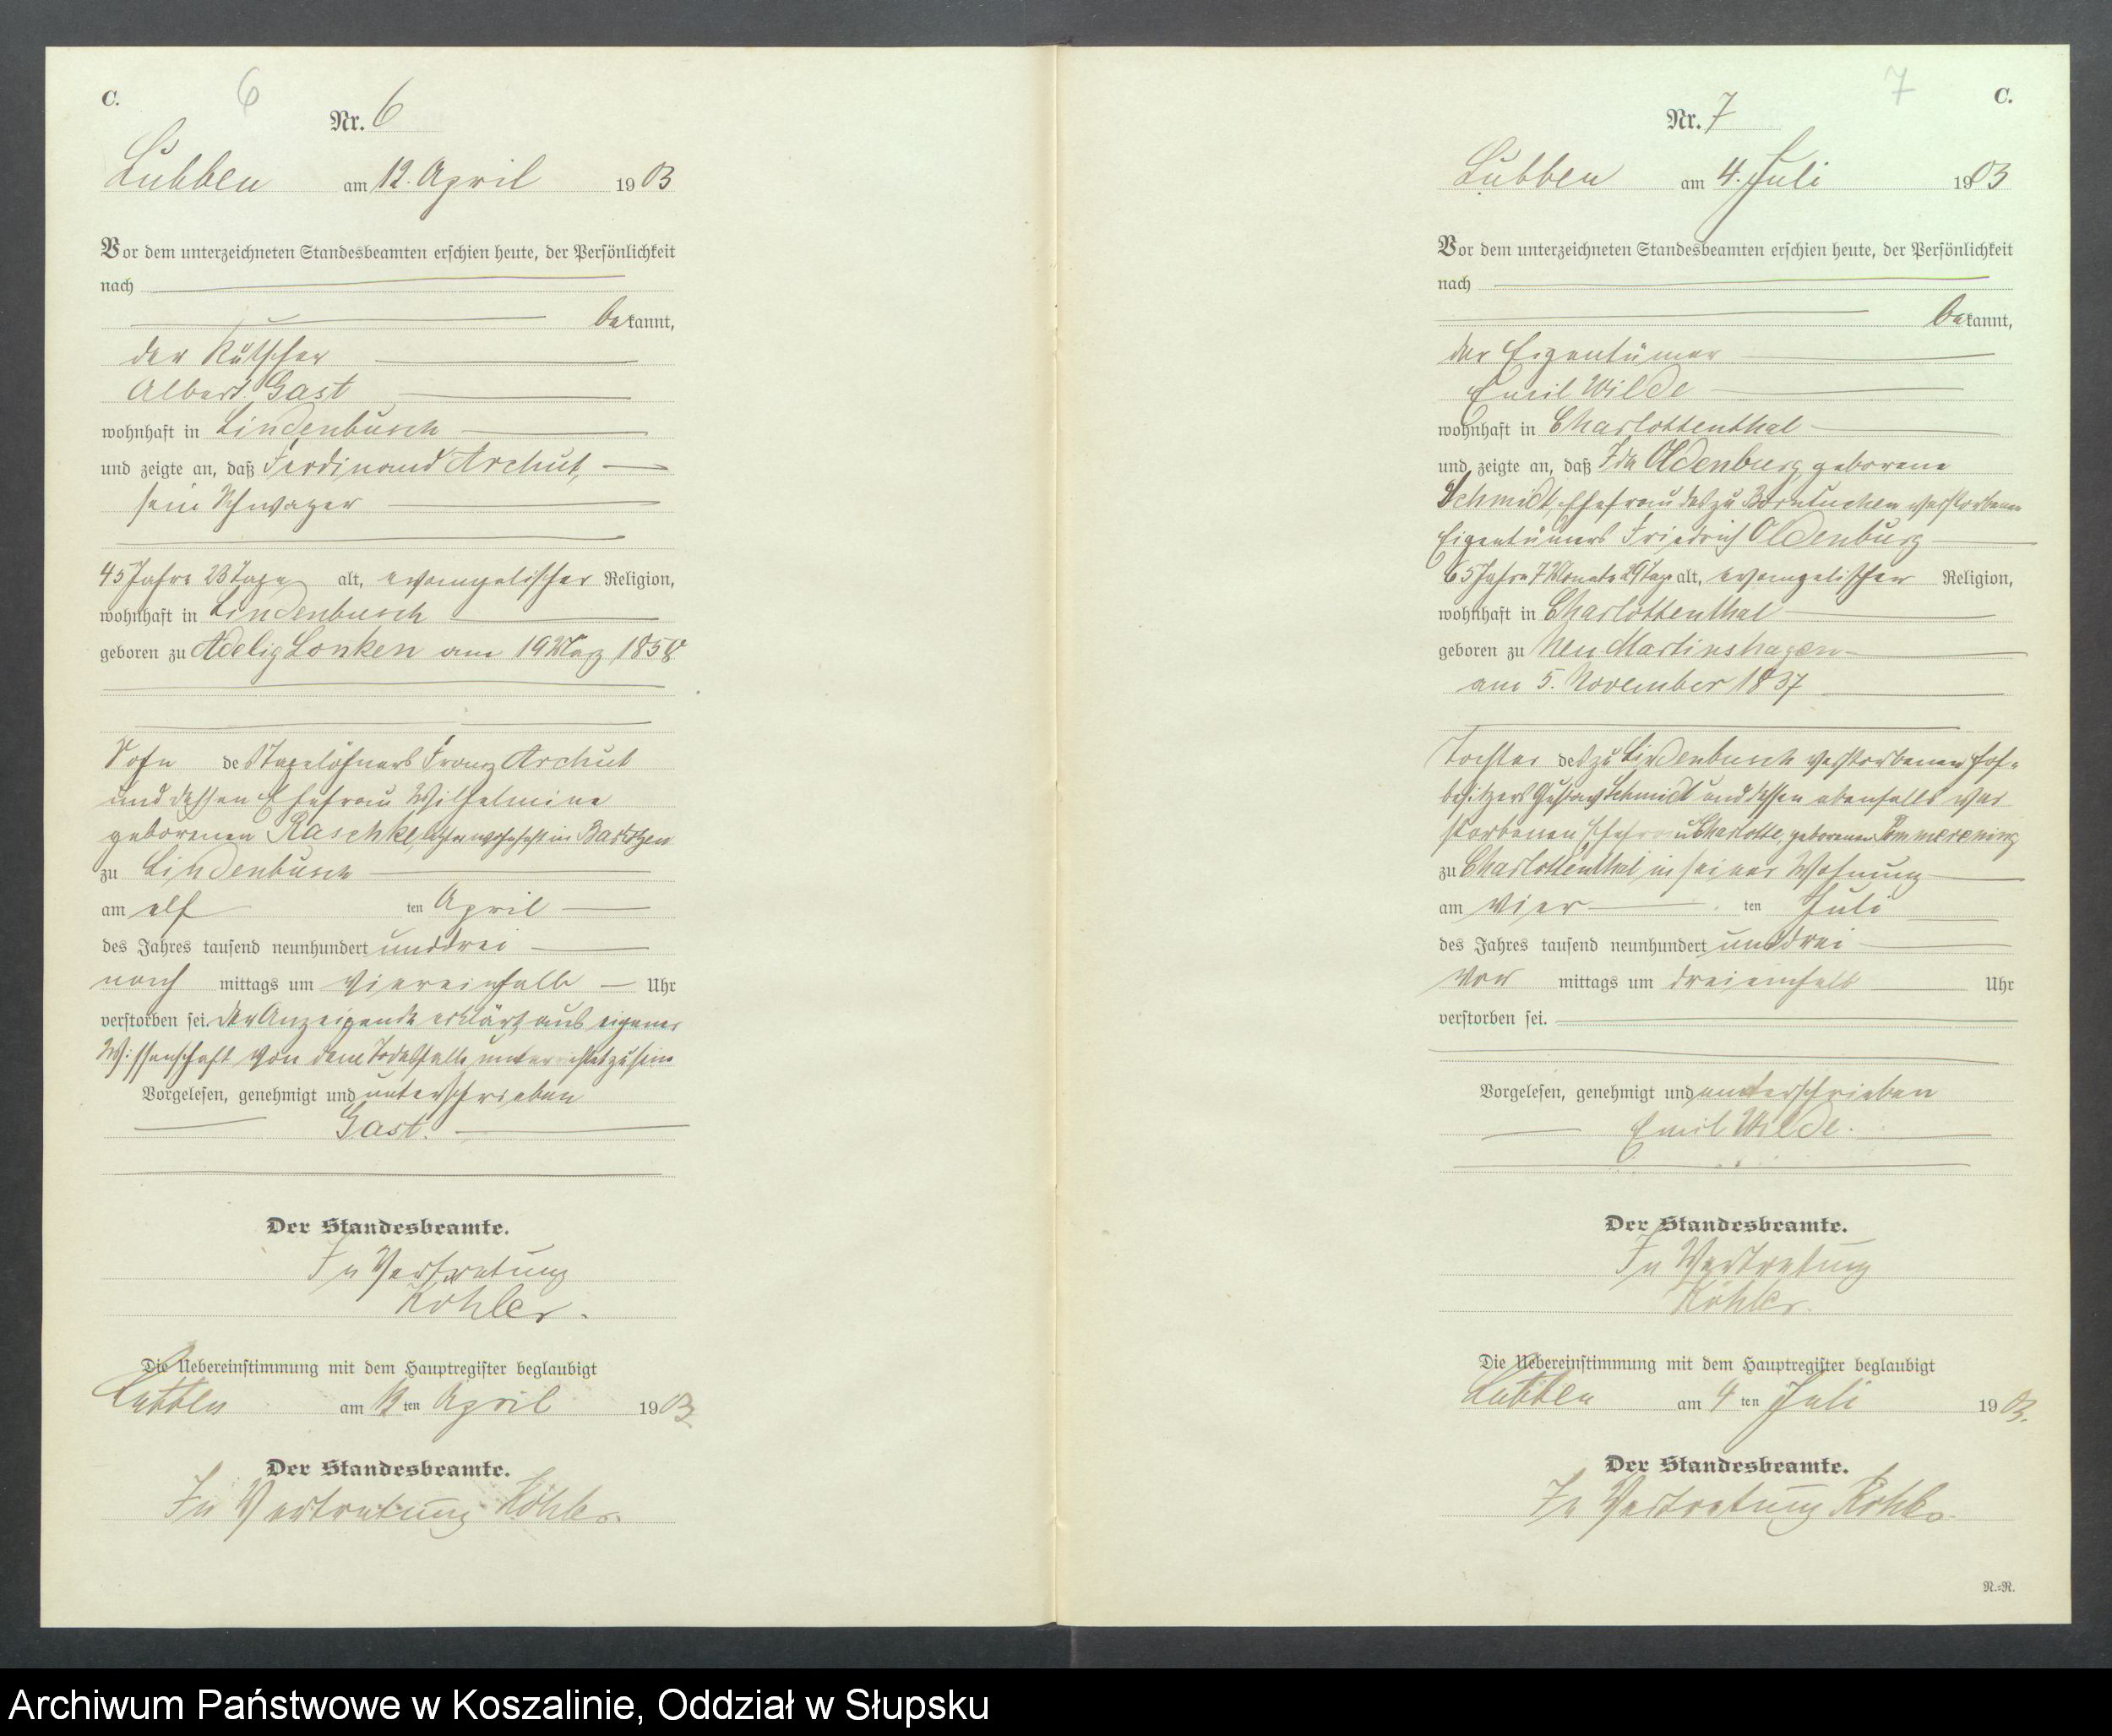 C.
6
Nr. 6
Lubben am 12. April 1903
Vor dem unterzeichneten Standesbeamten erschien heute, der Persönlichkeit
nach
bekannt,
der Kutscher
Albert Gast
wohnhaft in Lindenbusch
und zeigte an, daß Ferdinand Archut,
sein Schwager
45 Jahre 23 Tage alt, evangelischer Religion,
wohnhaft in Lindenbusch
geboren zu Adelig Lonken am 19 März 1858
Sohn des Tagelöhners Franz Archut
und dessen Ehefrau Wilhelmine
geborenen Raschke, wohnhaft in
zu Lindenbusch
am elf ten April
des Jahres tausend neunhundert unddrei
nach mittags um viereinhalb Uhr
verstorben sei. Der Anzeigende erklärt aus eigener
Wissenschaft von dem Todesfalle unterrichtet zu sein
Vorgelesen, genehmigt und unterschrieben
Gast.
Der Standesbeamte.
In Vertretung
Köhler.
Die Uebereinstimmung mit dem Hauptregister beglaubigt
Lubben am 12 ten April 1903
Der Standesbeamte.
In Vertretung Köhler.
7
C.
Nr. 7
Lubben am 4. Juli 1903
Vor dem unterzeichneten Standesbeamten erschien heute, der Persönlichkeit
nach
bekannt,
der Eigentümer
Emil Wilde
wohnhaft in Charlottenthal
und zeigte an, daß Ida Oldenburg geborene
Schmidt, Ehefrau des zu Borntuchen verstorbenen
Eigentümers Friedrich Oldenburg
65 Jahre 7 Monate 29 Tage alt, evangelischer Religion,
wohnhaft in Charlottenthal
geboren zu Neu Martinshagen
am 5. November 1837
Tochter des zu Lindenbusch verstorbenen Hof-
besitzers Gustav Schmidt und dessen ebenfalls ver
storbenen Ehefrau Charlotte, geborenen Pommerening
zu Charlottenthal in seiner Wohnung
am vier ten Juli
des Jahres tausend neunhundert unddrei
vor mittags um dreieinhalb Uhr
verstorben sei.
Vorgelesen, genehmigt und unterschrieben
Emil Wilde.
Der Standesbeamte.
In Vertretung
Köhler.
Die Uebereinstimmung mit dem Hauptregister beglaubigt
Lubben am 4 ten Juli 1903.
Der Standesbeamte.
In Vertretung Köhler
N.=N.
Archiwum Państwowe w Koszalinie, Oddział w Słupsku